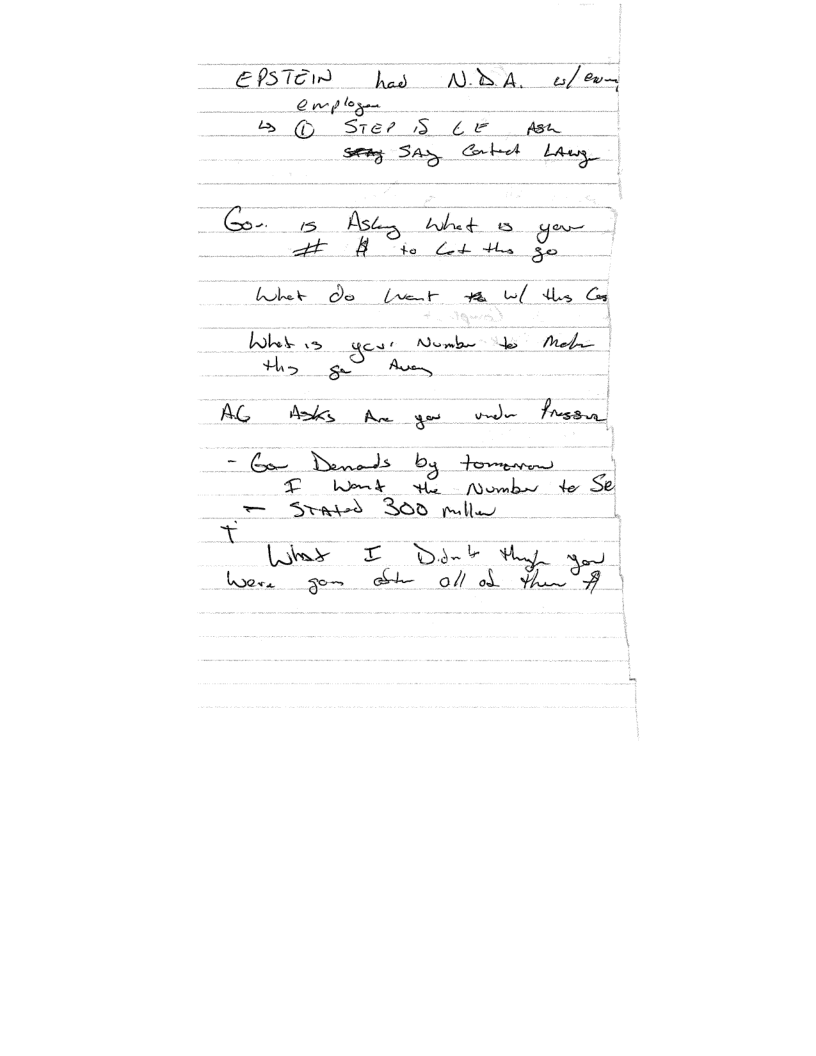 EPSTEIN had N.D.A. w/ every
employee
↳ ① STEP IS LE Ask
SAy Contact LAwy
Gov. is Asking what is your
# $ to Let this go
What do want w/ this Cas
What is your Number to Make
this go Away
AG Asks Are you under Pressure
- Gov Demands by tomorrow
I want the Number to Se
- STAted 300 million
What I Didn't think you
were going after all of their $